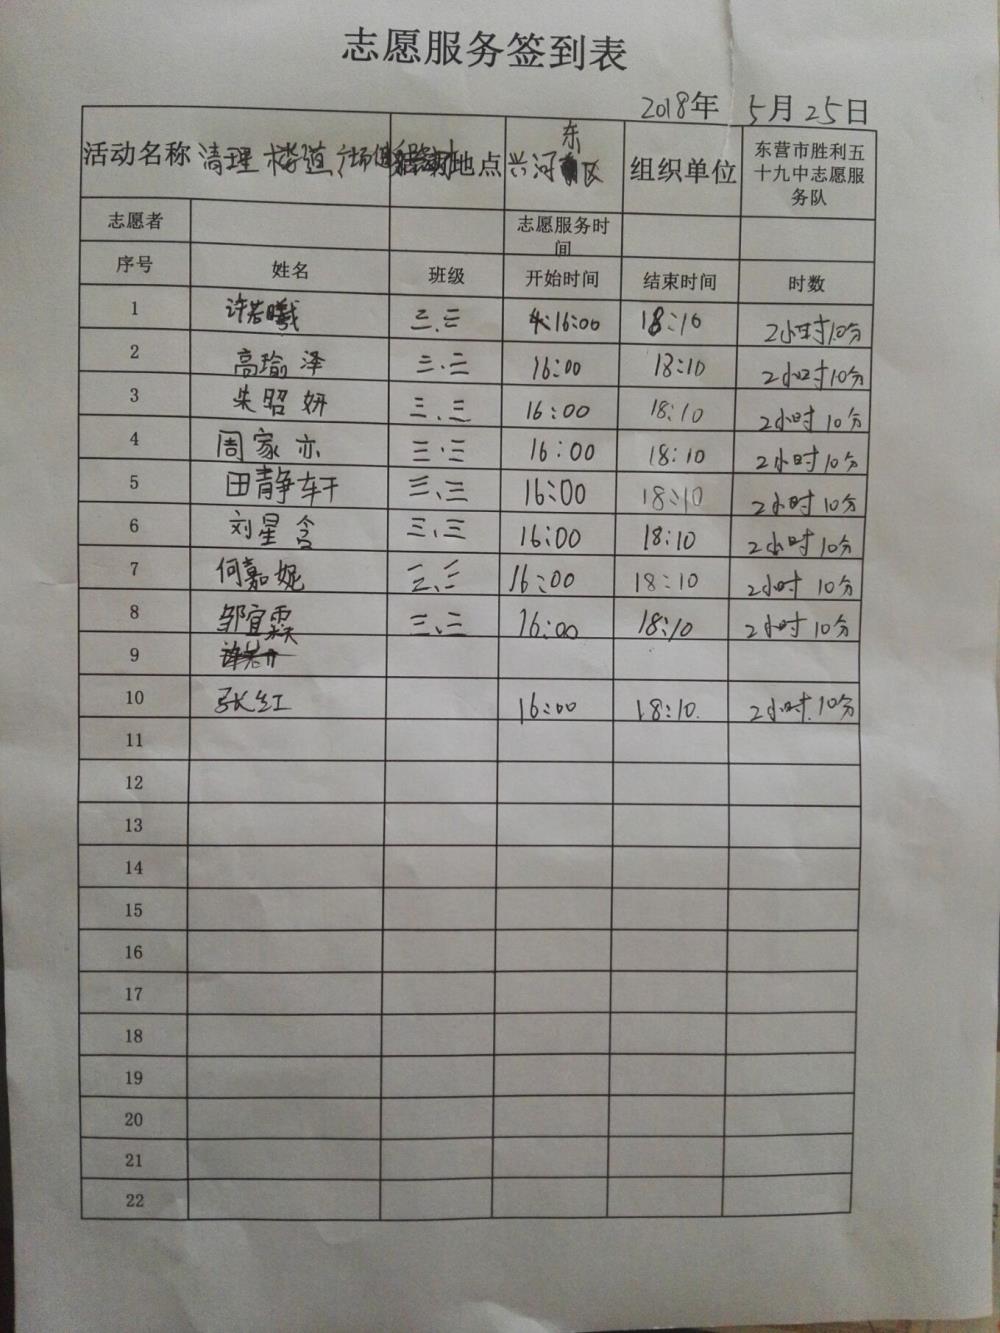 志愿服务签到表
2018年 5月25日
活动名称 清理楼道 广场 活动地点 兴河东区 组织单位 东营市胜利五十九中志愿服务队
志愿者 志愿服务时间
序号 姓名 班级 开始时间 结束时间 时数
1 许若曦 三.三 16:00 18:10 2小时10分
2 高瑜泽 三.三 16:00 18:10 2小时10分
3 朱昭妍 三.三 16:00 18:10 2小时10分
4 周家亦 三.三 16:00 18:10 2小时10分
5 田静轩 三、三 16:00 18:10 2小时10分
6 刘星含 三、三 16:00 18:10 2小时10分
7 何嘉妮 三、三 16:00 18:10 2小时10分
8 邹宜霖 三、三 16:00 18:10 2小时10分
9
10 张红 16:00 18:10 2小时10分
11
12
13
14
15
16
17
18
19
20
21
22